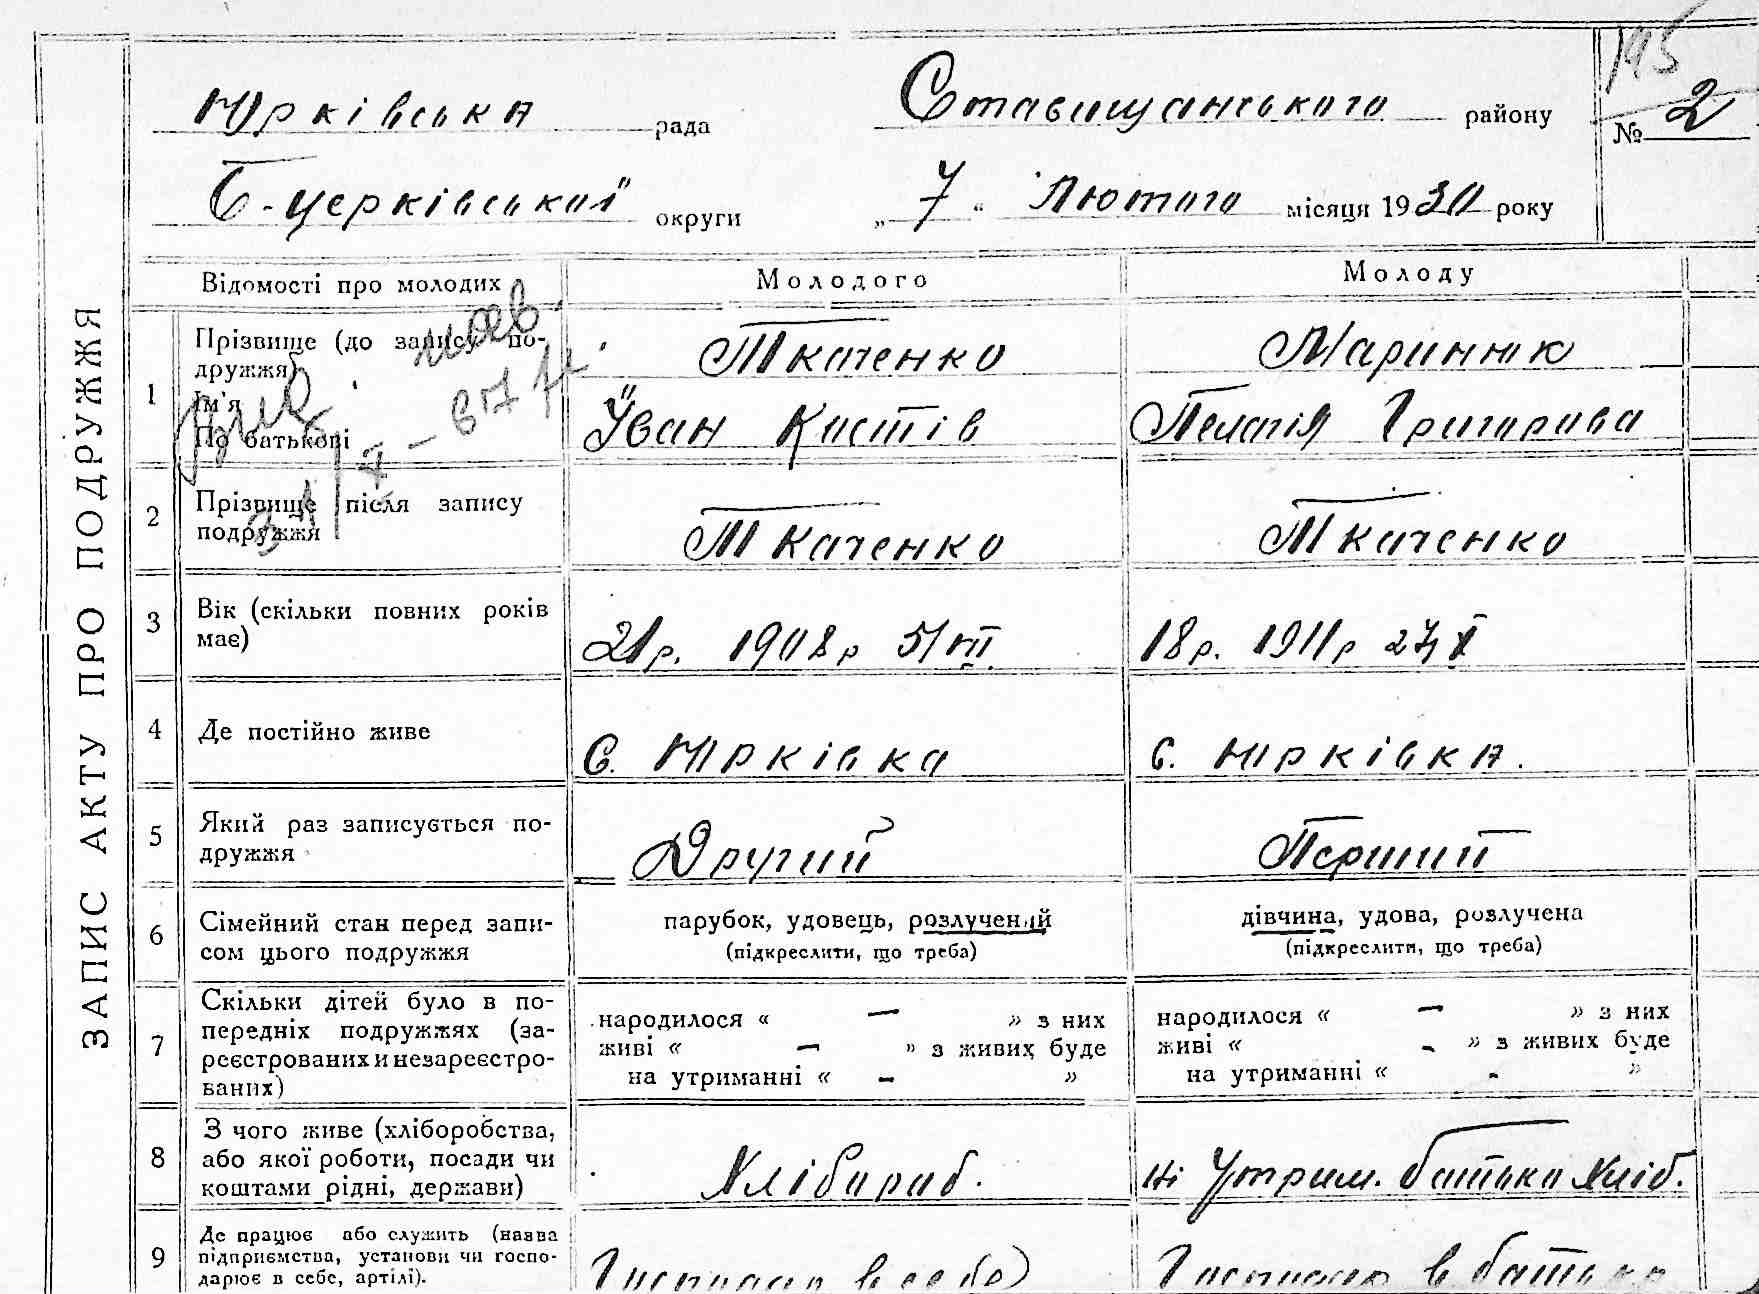 ЗАПИС АКТУ ПРО ПОДРУЖЖЯ
195
Юрківська рада Ставищанського району № 2
Б-церківської округи „7“ Лютого місяця 1930 року
Відомості про молодих Молодого Молоду
1 Прізвище (до запису подружжя) Ткаченко Маринюк
Ім'я
По батькові Іван Костів Пелагія Григорова
2 Прізвище після запису
подружжя Ткаченко Ткаченко
3 Вік (скільки повних років
має) 21р. 1908р 5/VII 18р. 1911р 27/X
4 Де постійно живе с. Юрківка с. Юрківка.
5 Який раз записується по-
дружжя Другий Перший
6 Сімейний стан перед запи- парубок, удовець, розлучений дівчина, удова, розлучена
сом цього подружжя (підкреслити, що треба) (підкреслити, що треба)
7 Скільки дітей було в по-
передніх подружжях (за- народилося « — » з них народилося « — » з них
реєстрованих и незареєстро- живі « — » з живих буде живі « - » з живих буде
ваних) на утриманні « - » на утриманні « - »
8 З чого живе (хліборобства,
або якої роботи, посади чи Хлібороб. На Утрим. батька хліб.
коштами рідні, держави)
9 Де працює або служить (назва
підприємства, установи чи госпо- Господар в себе Господар в батька
дарює в себе, артілі).